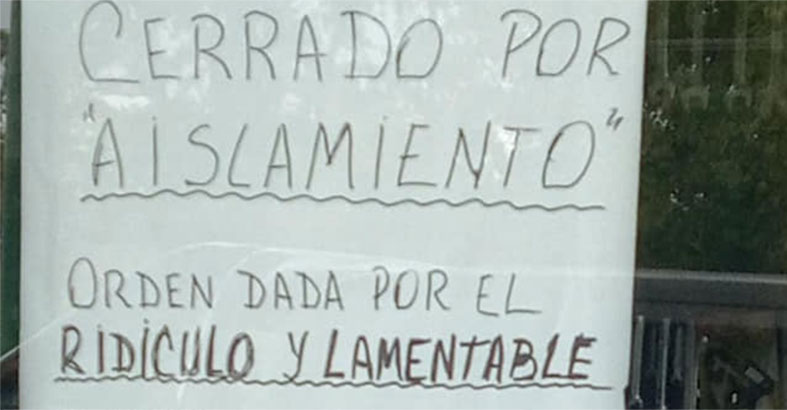 CERRADO POR
"AISLAMIENTO"
ORDEN DADA POR EL
RIDÍCULO Y LAMENTABLE